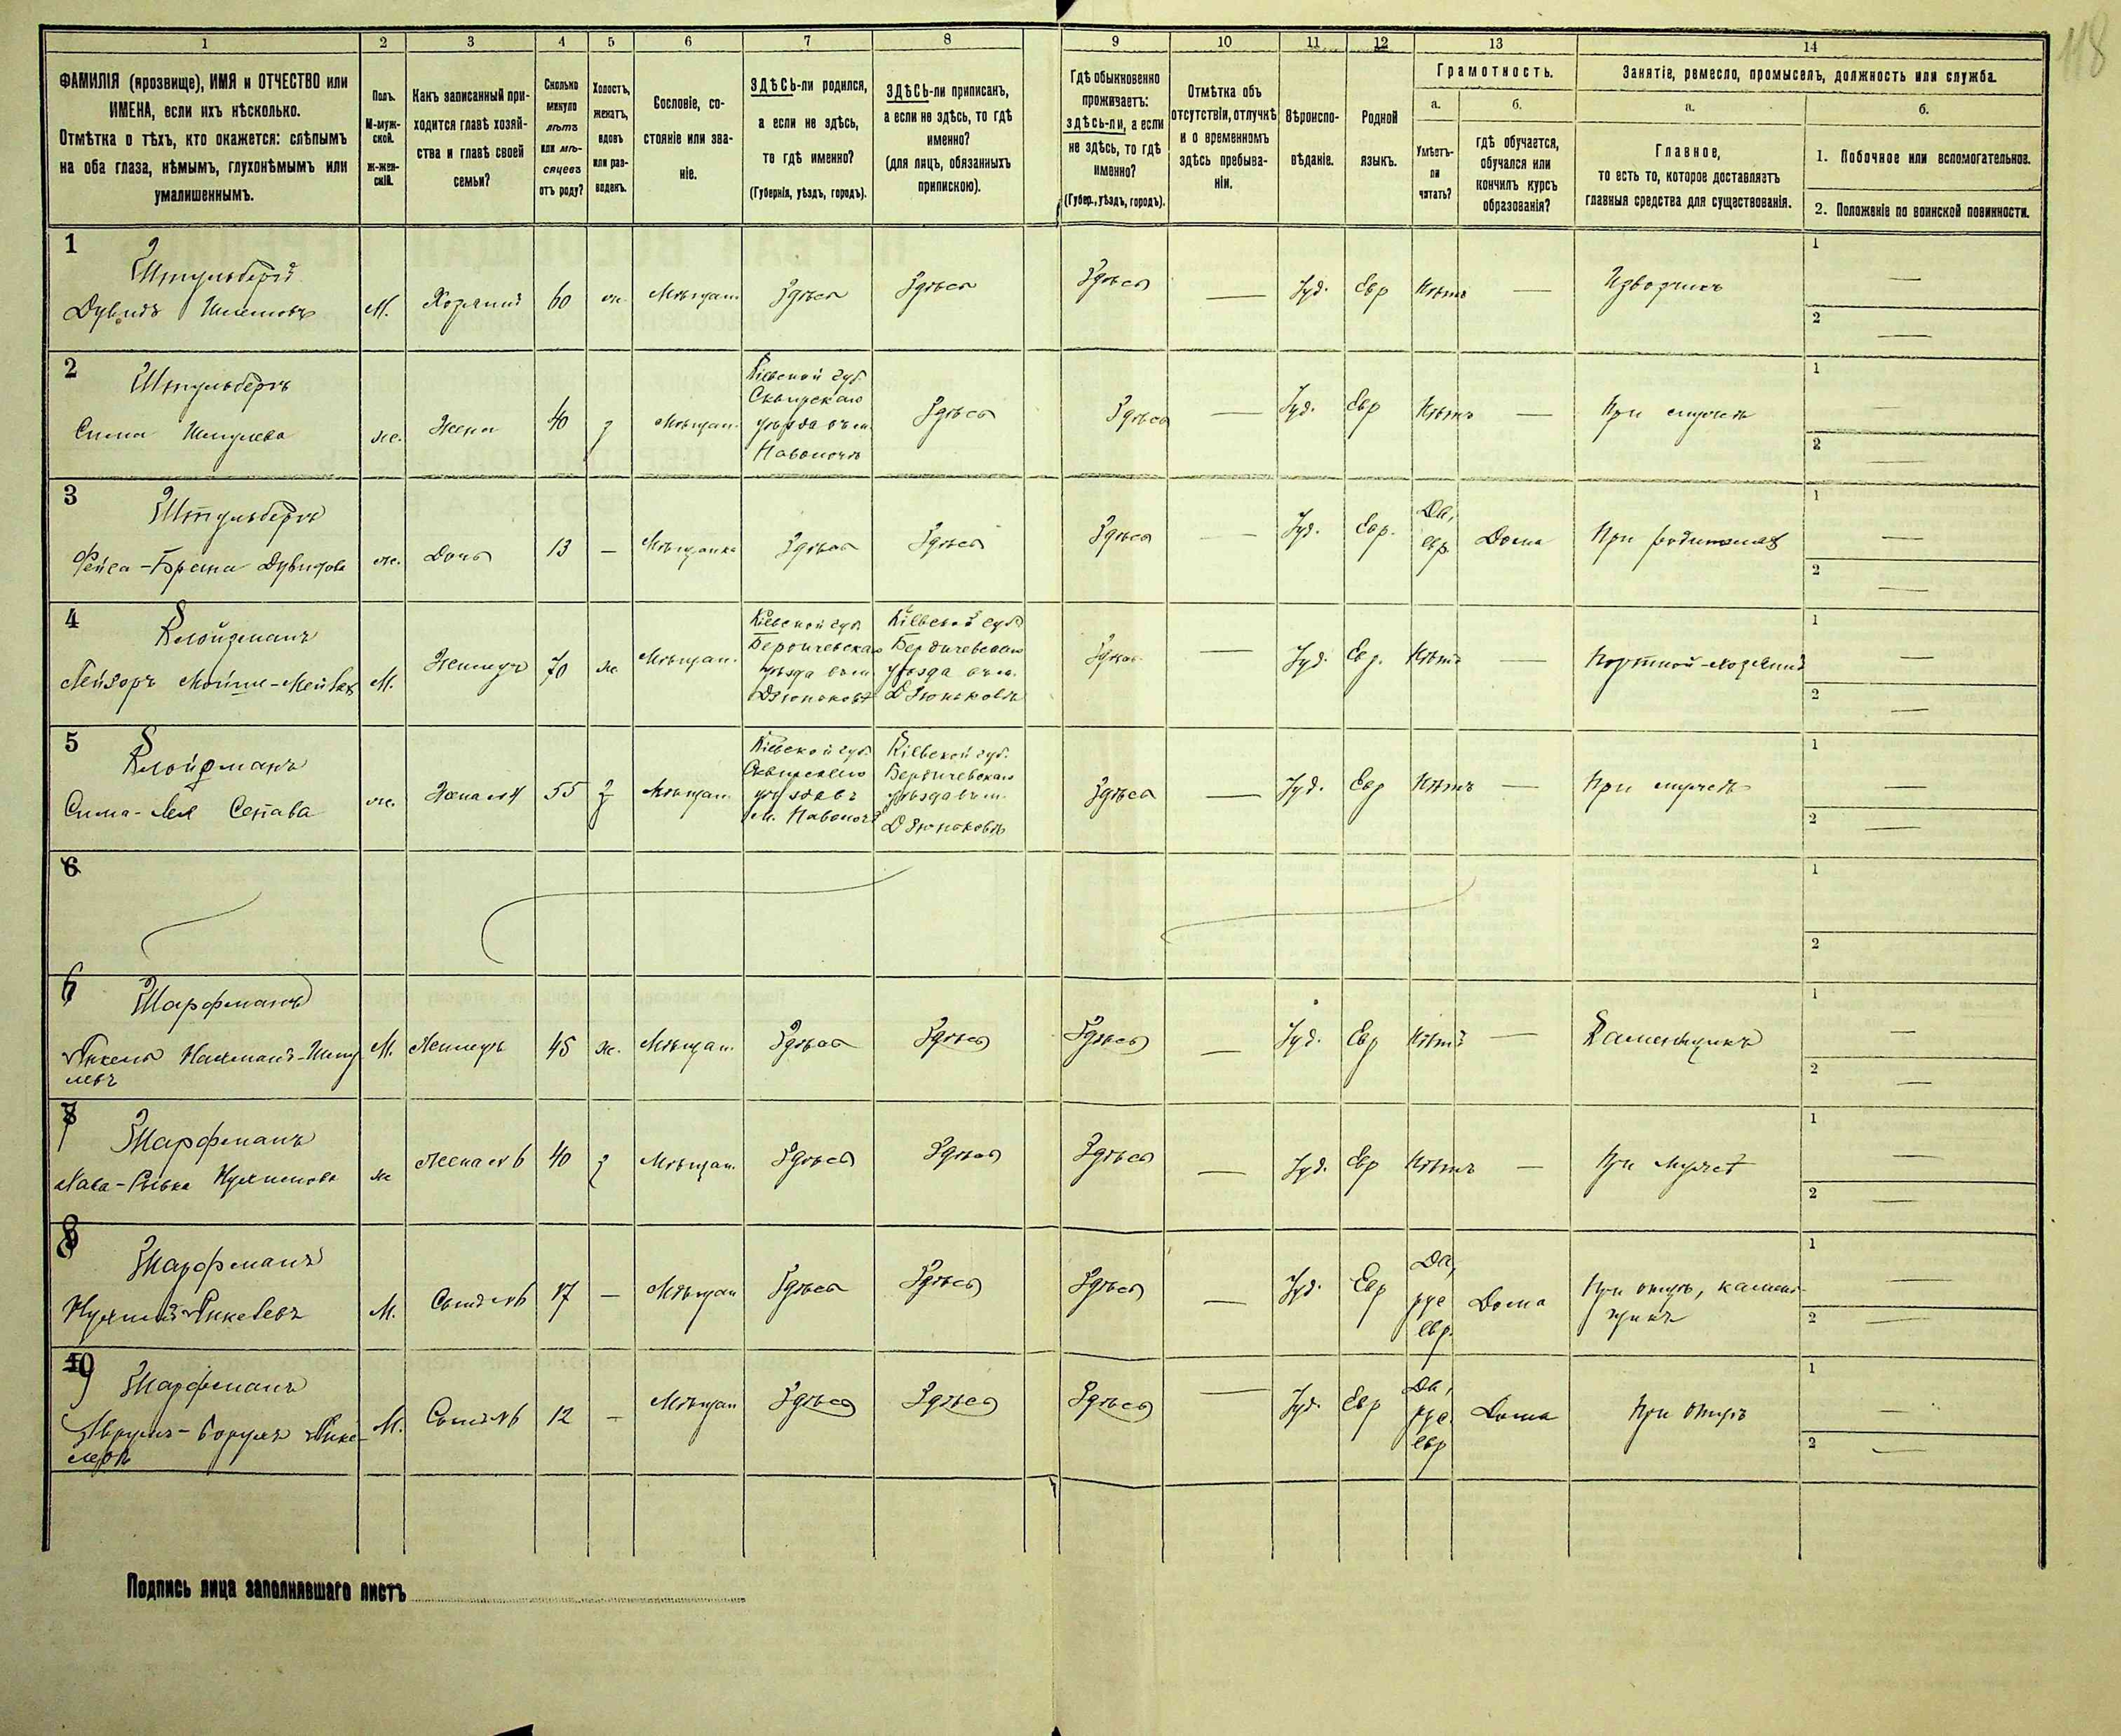 118
1 2 3 4 5 6 7 8 9 10 11 12 13 14
ФАМИЛІЯ (прозвище), ИМЯ и ОТЧЕСТВО или
ИМЕНА, если ихъ нѣсколько.
Отмѣтка о тѣхъ, кто окажется: слѣпымъ
на оба глаза, нѣмымъ, глухонѣмымъ или
умалишеннымъ.
Полъ.
М-муж-
ской.
Ж-жен-
скій.
Какъ записанный при-
ходится главѣ хозяй-
ства и главѣ своей
семьи?
Сколько
минуло
лѣтъ
или мѣ-
сяцевъ
отъ роду?
Холостъ,
женатъ,
вдовъ
или раз-
веденъ.
Сословіе, со-
стояніе или зва-
ніе.
ЗДѢСЬ-ли родился,
а если не здѣсь,
то гдѣ именно?
(Губернія, уѣздъ, городъ).
ЗДѢСЬ-ли приписанъ,
а если не здѣсь, то гдѣ
именно?
(для лицъ, обязанныхъ
припискою).
Гдѣ обыкновенно
проживаетъ:
здѣсь-ли, а если
не здѣсь, то гдѣ
именно?
(Губер., уѣздъ, городъ).
Отмѣтка объ
отсутствіи, отлучкѣ
и о временномъ
здѣсь пребыва-
ніи.
Вѣроиспо-
вѣданіе.
Родной
языкъ.
Грамотность.
а.
Умѣетъ-
ли
читать?
б.
гдѣ обучается,
обучался или
кончилъ курсъ
образованія?
Занятіе, ремесло, промыселъ, должность или служба.
а.
Главное,
то есть то, которое доставляетъ
главныя средства для существованія.
б.
1. Побочное или вспомогательное.
2. Положеніе по воинской повинности.
1
Штульбергъ
Дувидъ
М. Хозяинъ 60 ж. Мѣщан. Здѣсь Здѣсь Здѣсь — Іуд. Евр Нѣтъ — Извозчикъ
1 —
2 —
2
Штульбергъ
Сима
ж. Жена 40 з Мѣщан.
Кіевской губ.
Сквирскаго
уѣзда въ м.
Паволочѣ
Здѣсь Здѣсь — Іуд. Евр Нѣтъ — При мужѣ
1 —
2 —
3
Штульбергъ
Фейга-Брана Дувидова
ж. Дочь 13 — Мѣщанка Здѣсь Здѣсь Здѣсь — Іуд. Евр.
Да,
евр.
Дома При родителяхъ
1 —
2 —
4
Клойзманъ
Лейзоръ
М. Жилецъ 70 ж Мѣщан.
Кіевской губ.
Бердичевскаго
уѣзда въ м.
Дзюньковѣ
Кіевской губ.
Бердичевскаго
уѣзда въ м.
Дзюньковѣ
Здѣсь — Іуд. Евр. Нѣтъ — Портной-хозяинъ
1 —
2 —
5
Клойзманъ
Сима-Лея
ж. Жена его 4 55 з Мѣщан.
Кіевской губ.
Сквирскаго
уѣзда въ
м. Паволочѣ
Кіевской губ.
Бердичевскаго
уѣзда въ м.
Дзюньковѣ
Здѣсь — Іуд. Евр Нѣтъ — При мужѣ
1 —
2 —
6
1
2
6
Шарфманъ
М. Жилецъ 45 ж. Мѣщан. Здѣсь Здѣсь Здѣсь — Іуд. Евр Нѣтъ — Каменщикъ
1 —
2 —
7
Шарфманъ
Ривка Нухимова
ж Жена его 6 40 з Мѣщан. Здѣсь Здѣсь Здѣсь — Іуд. Евр Нѣтъ — При мужѣ
1 —
2 —
8
Шарфманъ
М. Сынъ его 6 17 — Мѣщан Здѣсь Здѣсь Здѣсь — Іуд. Евр
Да,
рус
евр.
Дома
При отцѣ, камен-
щикъ
1 —
2 —
9
Шарфманъ
М. Сынъ его 6 12 — Мѣщан Здѣсь Здѣсь Здѣсь — Іуд. Евр
Да,
рус
евр
Дома При отцѣ
1 —
2 —
Подпись лица заполнявшаго листъ